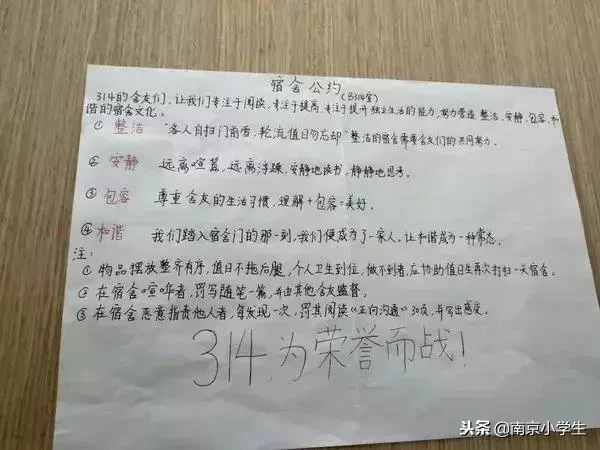 宿舍公约
(B314室)
314的舍友们,让我们专注于阅读,专注于提高,专注于提升独立生活的能力,努力营造 整洁,安静,包容,和
谐的宿舍文化:
① 整洁 “各人自扫门前雪,轮流值日勿忘却”整洁的宿舍需要舍友们的共同努力。
② 安静 远离喧嚣,远离浮躁,安静地读书,静静地思考。
③ 包容 尊重舍友的生活习惯,理解+包容=美好。
④ 和谐 我们踏入宿舍门的那一刻,我们便成为了一家人。让和谐成为一种常态。
注:
① 物品摆放整齐有序,值日不拖后腿,个人卫生到位,做不到者,应协助值日生再次打扫一天宿舍.
② 在宿舍喧哗者,罚写随笔一篇,并由其他舍友监督。
③ 在宿舍恶意指责他人者,每发现一次,罚其阅读《正向沟通》30页,并写出感受。
314,为荣誉而战!
头条@南京小学生